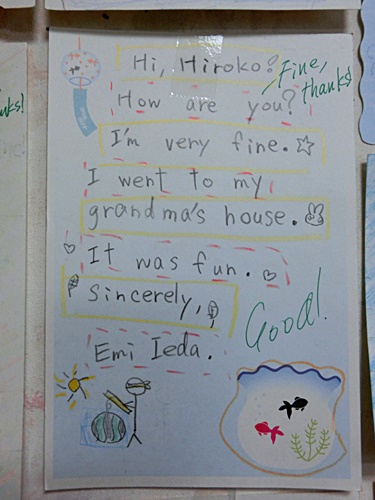 Hi, Hiroko?
Fine,
thanks!
How are you?
I'm very fine.
I went to my
grandma's house.
It was fun.
Sincerely,
Emi Ieda.
Good!